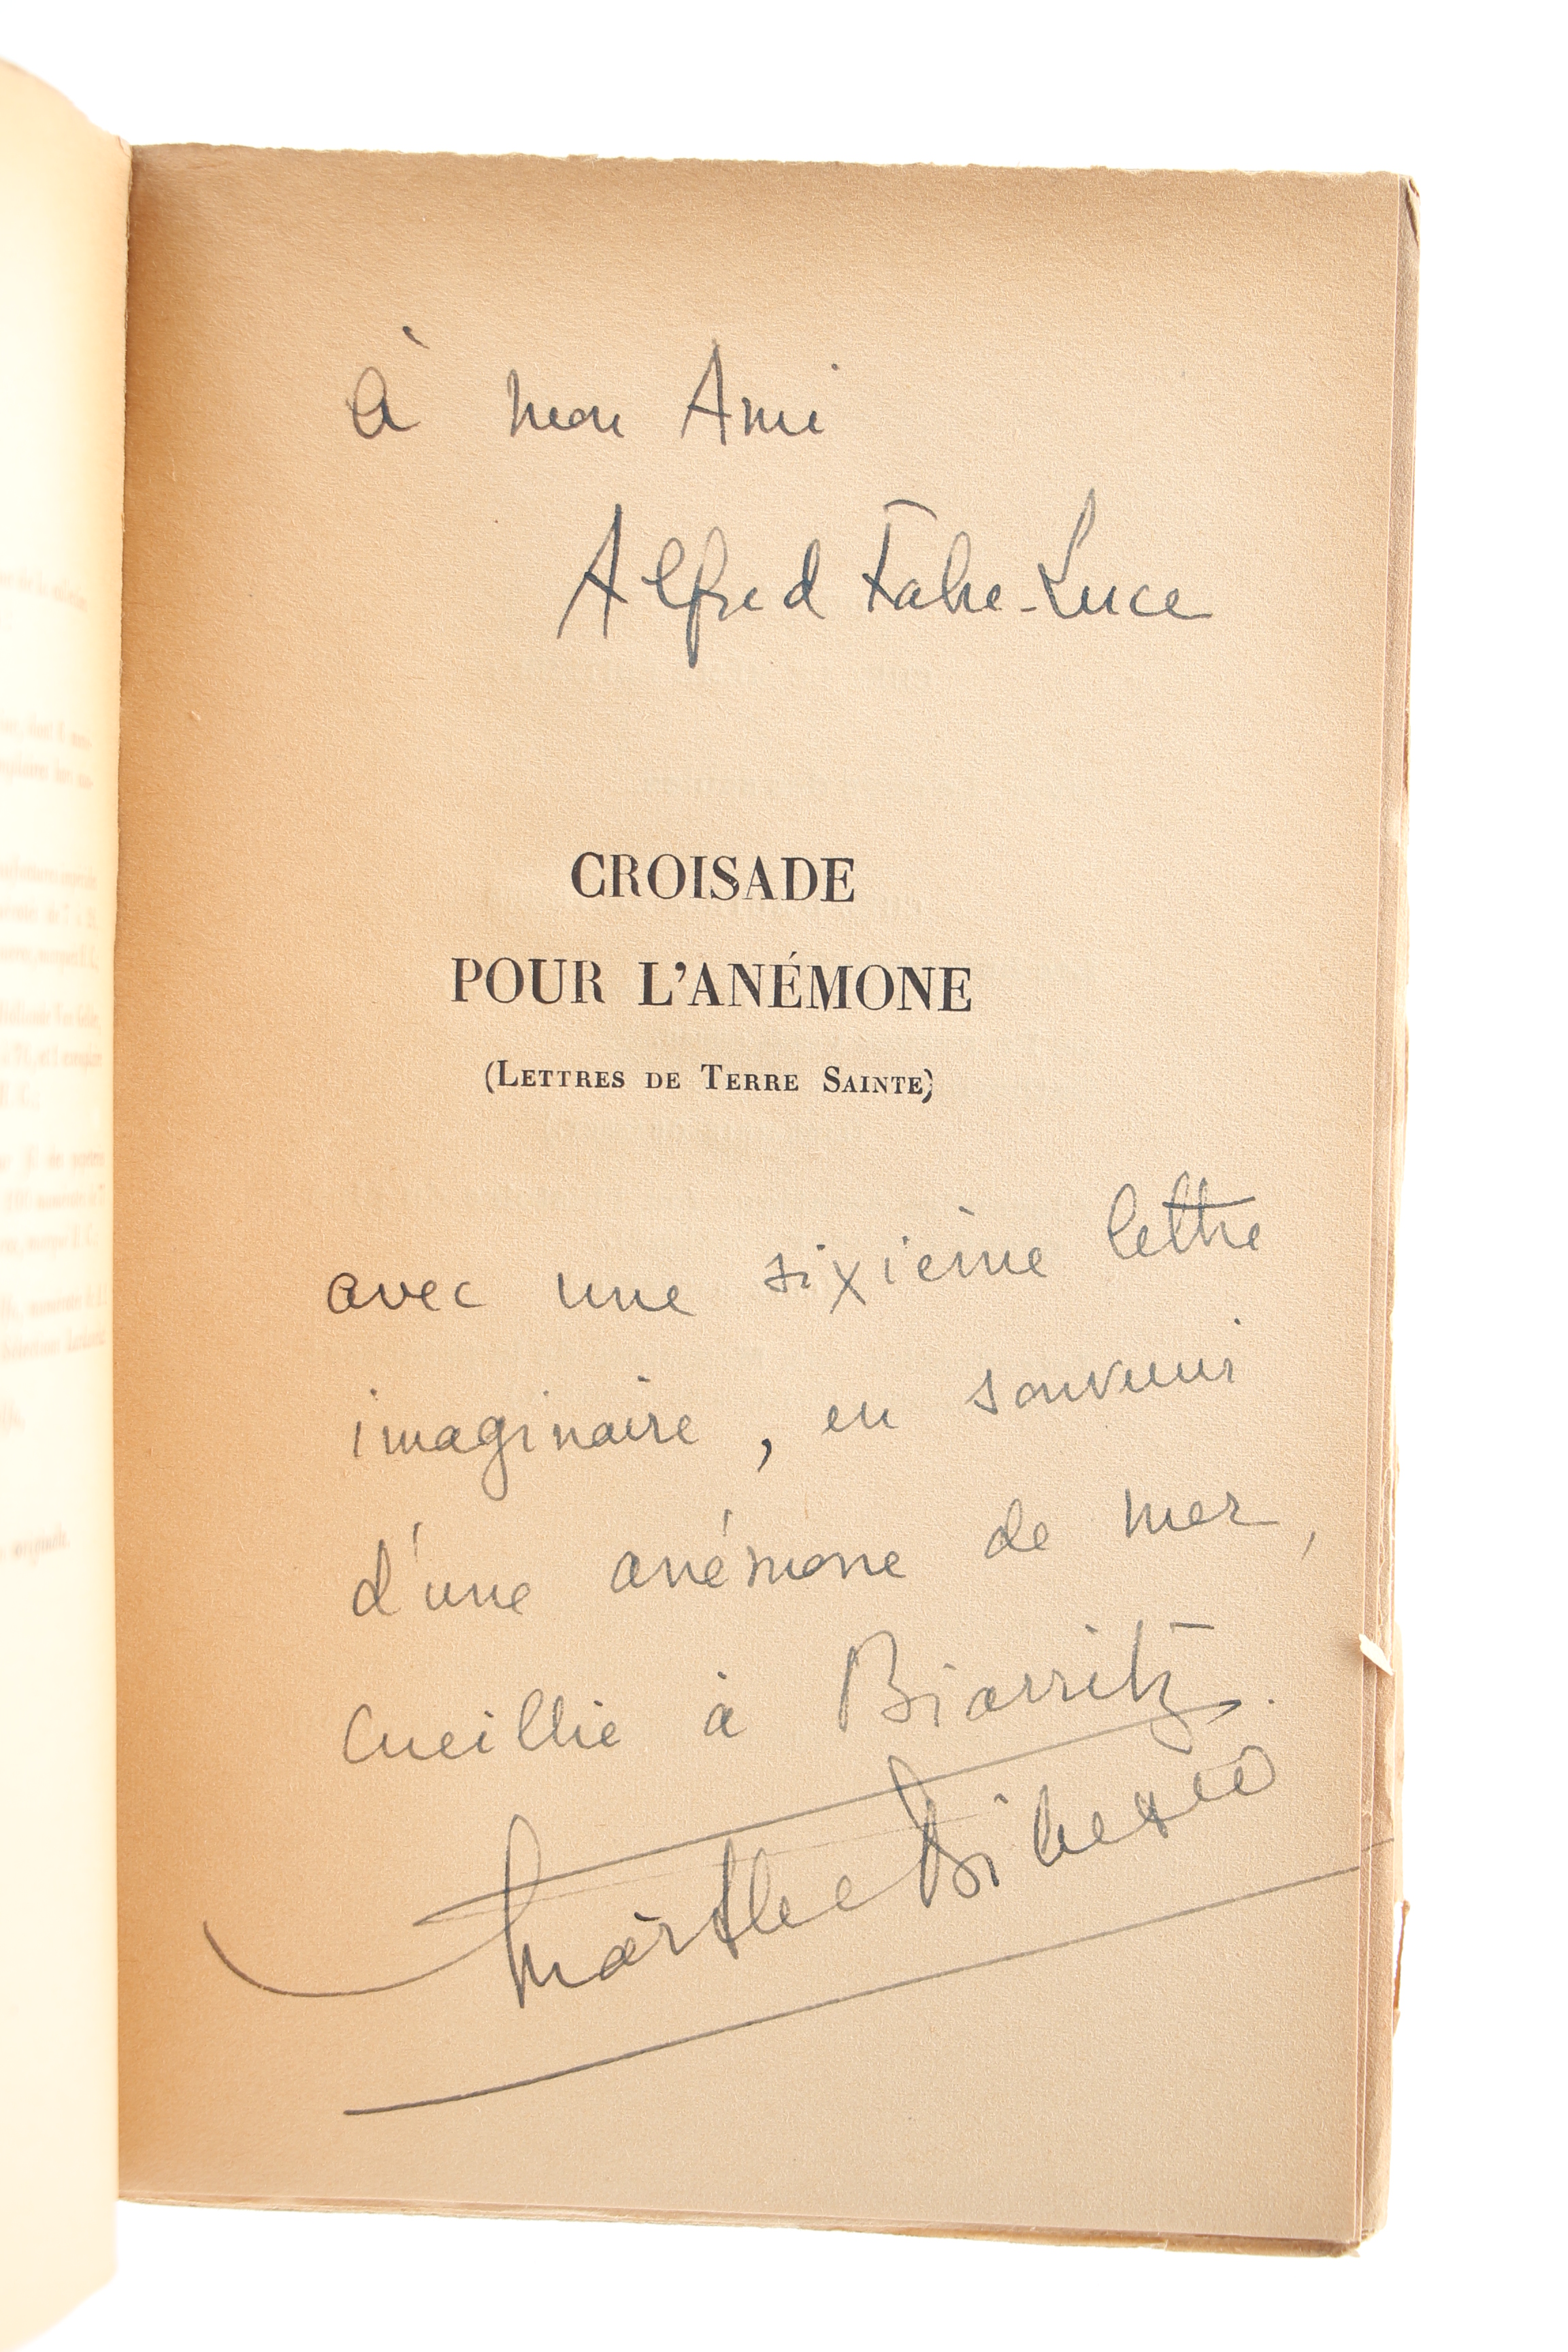 à mon Ami
Alfred Fabre-Luce
CROISADE
POUR L'ANÉMONE
(LETTRES DE TERRE SAINTE)
avec une sixième lettre
imaginaire, en souvenir
d'une anémone de mer,
cueillie à Biarritz.
Marthe Bibesco